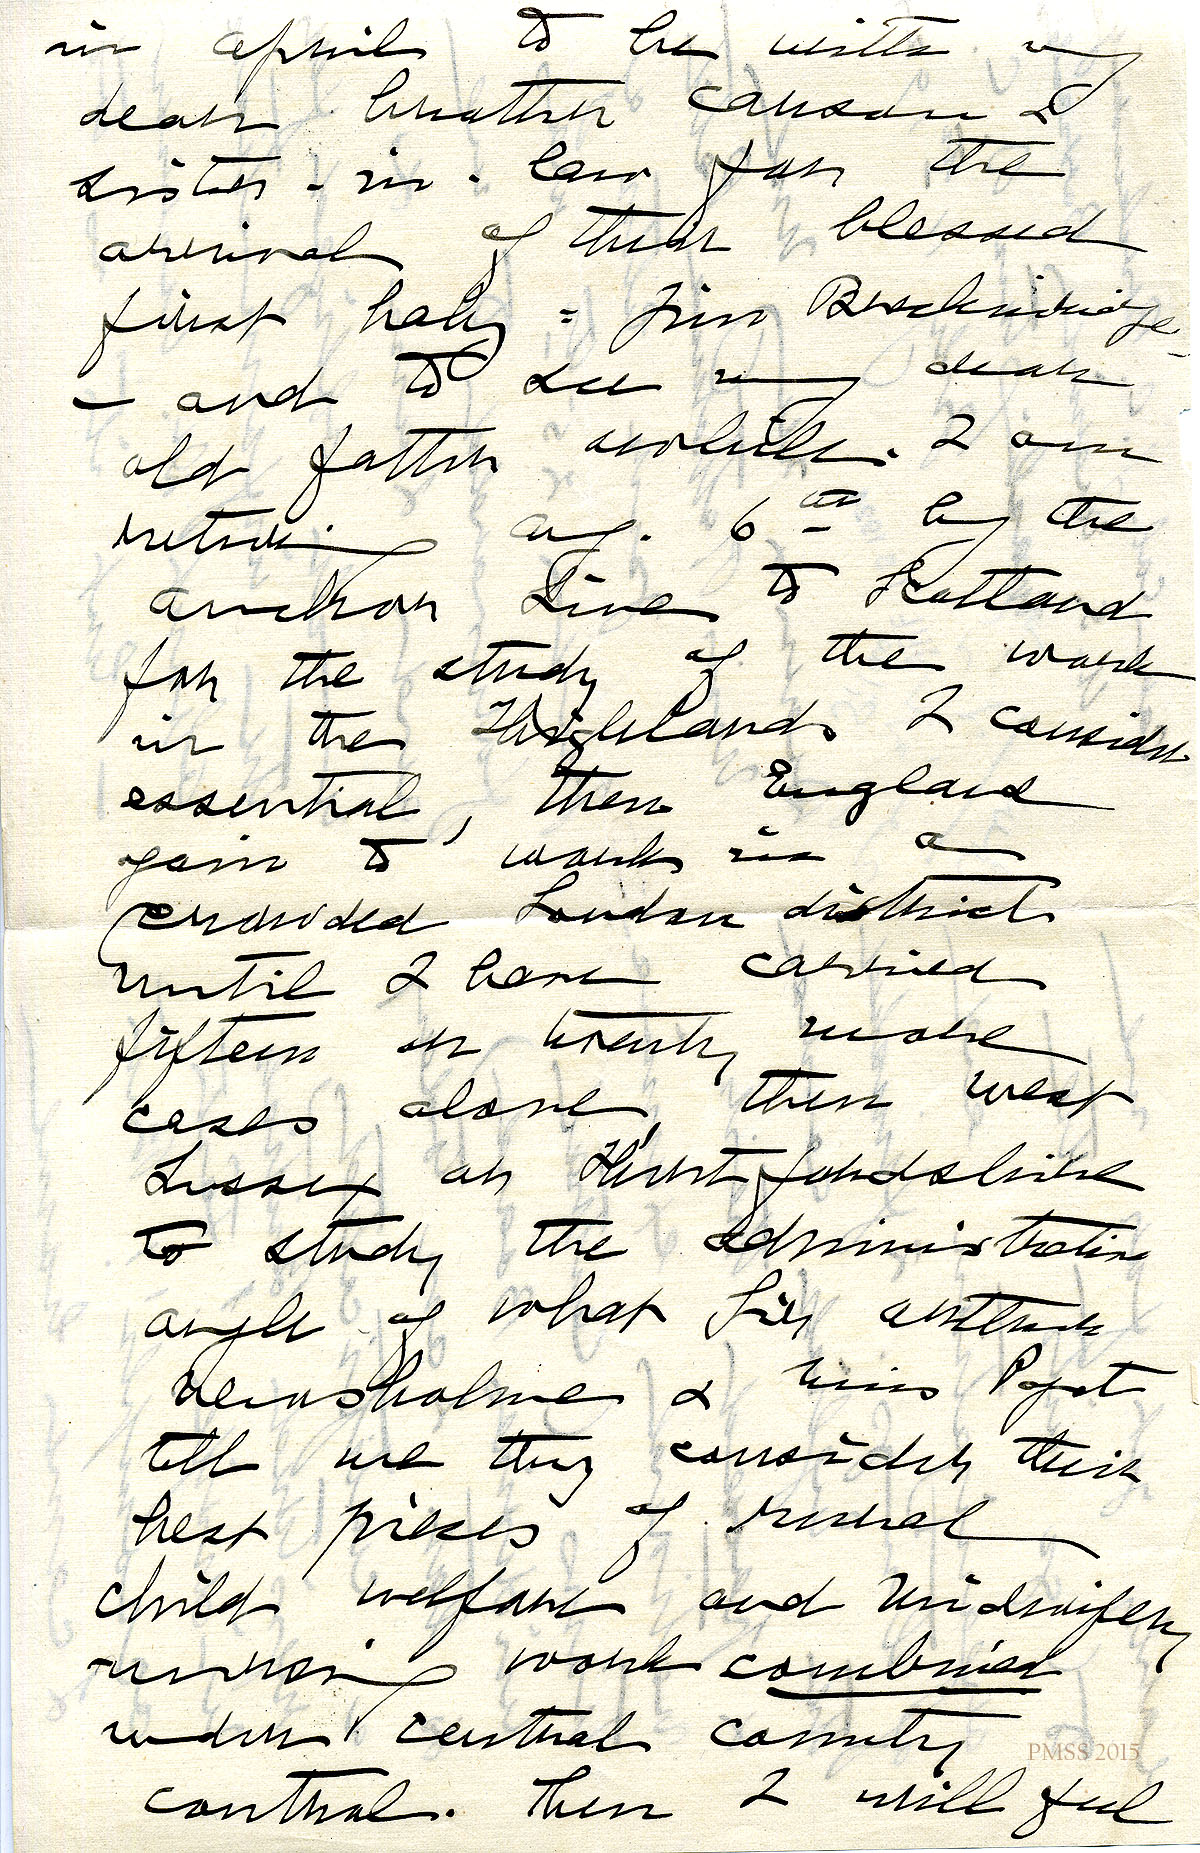 in april to be with my
dear brother Carson &
sister-in-law for the
arrival of their blessed
first baby = Jim Breckinridge -
- and to see my dear
old father awhile. I am
returning Aug. 6th by the
Anchor Line to Scotland
for the study of the work
in the Highlands I consider
essential, then England
again to work in a
crowded London district
until I have carried
fifteen or twenty more
cases alone, then West
Sussex or Hertfordshire
to study the administrative
angle of what Sir Arthur
Newsholme & Miss Paget
tell me they consider their
best pieces of rural
child welfare and midwifery
nursing work combined
under central county
control. Then I will feel
PMSS 2015